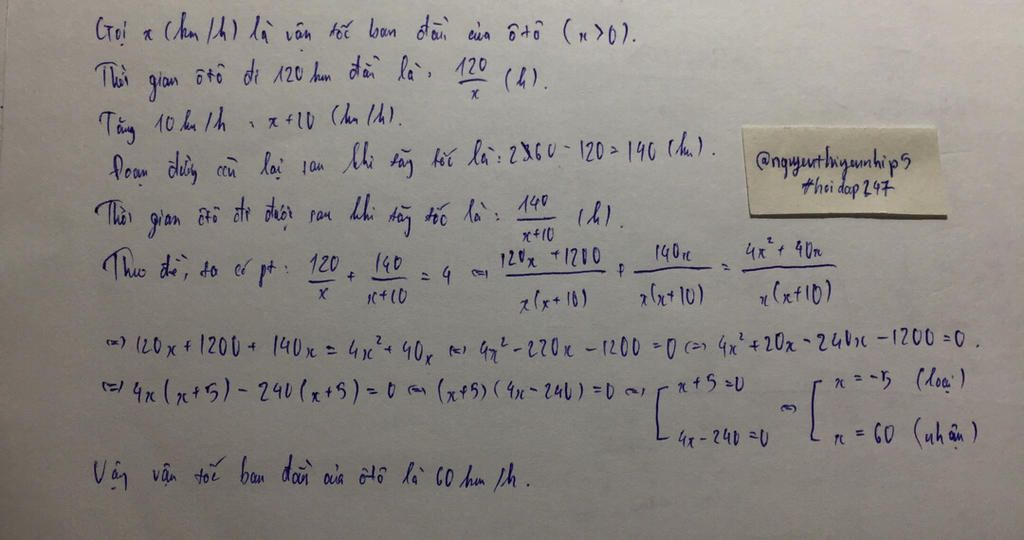 Gọi x (km/h) là vận tốc ban đầu của ôtô (x>0).
Thời gian ôtô đi 120 km đầu là: 120/x (h).
Tăng 10 km/h : x+10 (km/h).
Đoạn đường còn lại sau khi tăng tốc là: 260 - 120 = 140 (km).
@nguyenthiyennhip5
#hoidap247
Thời gian ôtô đi được sau khi tăng tốc là: 140/(x+10) (h).
Theo đề, ta có pt: 120/x + 140/(x+10) = 4 ⇔ (120x + 1200)/(x(x+10)) + 140x/(x(x+10)) = (4x² + 40x)/(x(x+10))
⇔ 120x + 1200 + 140x = 4x² + 40x ⇔ 4x² - 220x - 1200 = 0 ⇔ 4x² + 20x - 240x - 1200 = 0.
⇔ 4x(x+5) - 240(x+5) = 0 ⇔ (x+5)(4x-240) = 0 ⇔ [ x+5 = 0 ⇔ [ x = -5 (loại)
4x - 240 = 0 x = 60 (nhận)
Vậy vận tốc ban đầu của ôtô là 60 km/h.